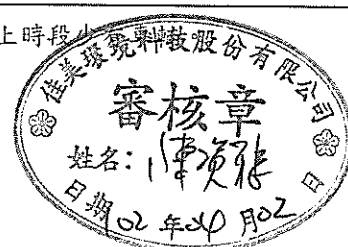 上時段
佳美環境科技股份有限公司
審核章
姓名：陳
日期102年04月02日